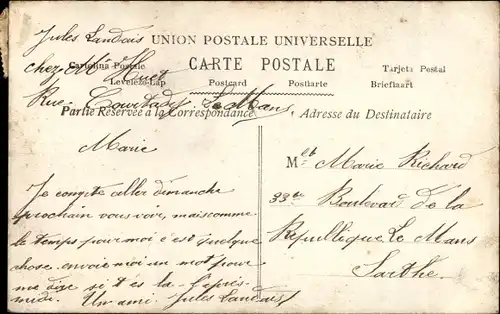 Jules Landais
UNION POSTALE UNIVERSELLE
chez Mr Huet
Cartolina Postale
CARTE POSTALE
Tarjeta Postal
Levelező-Lap
Postcard
Postkarte
Briefkaart
Rue Courtady Le Mans
Partie Réservée à la Correspondance
Adresse du Destinataire
Marie
Je compte aller dimanche
prochain vous voir, mais comme
le temps pour moi c'est quelque
chose envoie moi un mot pour
me dire si t'es là l'après
midi. Un ami Jules Landais
Mlle Marie Richard
33 ter Boulevard de la
République Le Mans
Sarthe